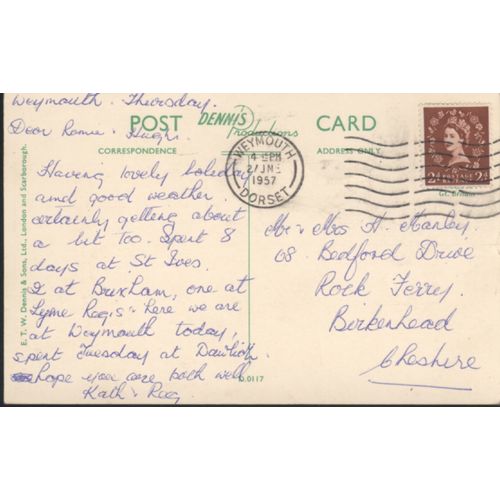 Weymouth. Thursday.
Dear Romie & Hugh.
Having lovely holiday
and good weather.
certainly getting about
a bit too. Spent 8
days at St Ives.
2 at Brixham, one at
Lyme Regis & here we are
at Weymouth today,
spent Tuesday at Dawlish.
hope you are both well
Kath & Reg
POST CARD
DENNIS
Productions
CORRESPONDENCE
ADDRESS ONLY
E. T. W. Dennis & Sons, Ltd., London and Scarborough.
D.0117
WEYMOUTH
4 PM
27 JNE
1957
DORSET
POSTAGE
Gt. Britain
Mr & Mrs H. Manley
68 Bedford Drive
Rock Ferry.
Birkenhead
Cheshire